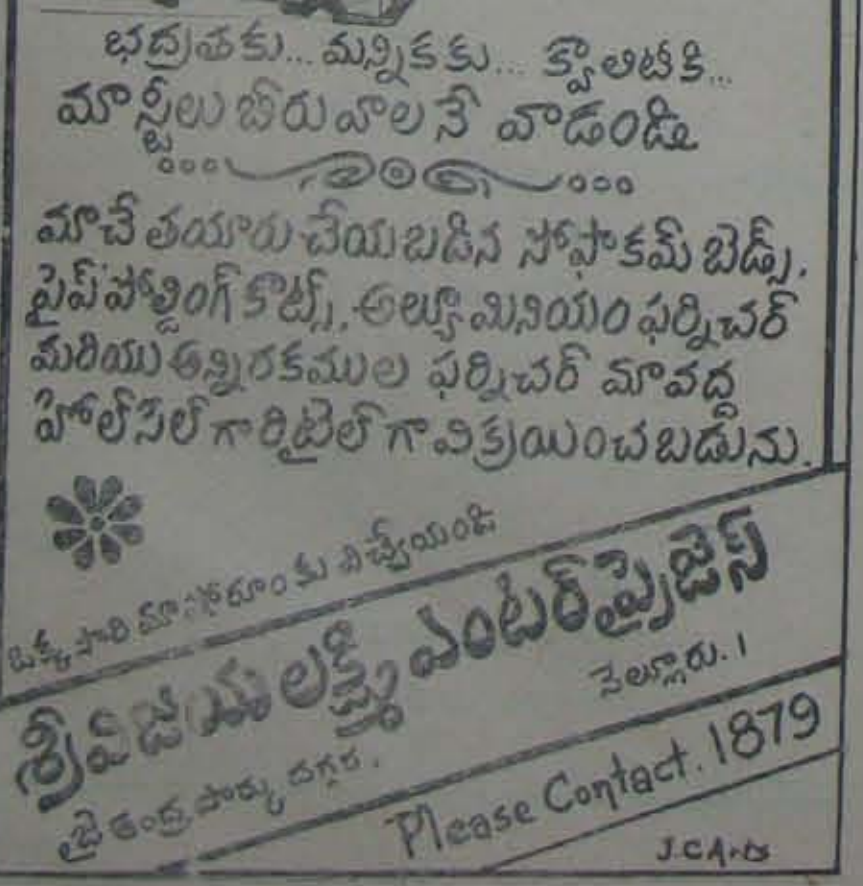 భద్రతకు... మన్నికకు... క్వాలిటీకి...
మా స్టీలు బీరువాలనే వాడండి
మాచే తయారు చేయబడిన సోఫాకమ్ బెడ్స్,
పైప్ ఫోల్డింగ్ కాట్స్, అల్యూమినియం ఫర్నిచర్
మరియు అన్నిరకముల ఫర్నిచర్ మావద్ద
హోల్‌సేల్ గా రిటైల్ గా విక్రయించబడును.
ఒక్కసారి మా షోరూం కు విచ్చేయండి
శ్రీ విజయలక్ష్మి ఎంటర్‌ప్రైజెస్
జై ఆంద్ర పార్కు దగ్గర, నెల్లూరు.1
Please Contact. 1879